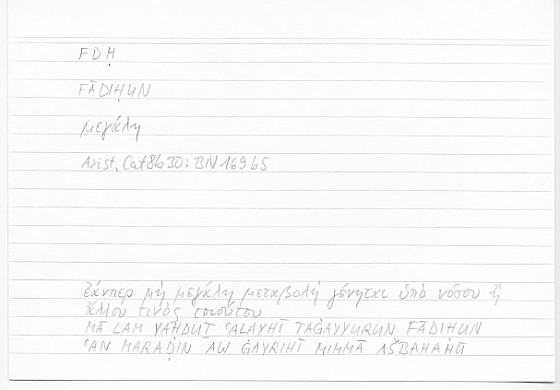 FDḤ
FĀDIḤUN
μεγάλη
Arist. Cat 8b30: BN 169b5
ἐάνπερ μὴ μεγάλη μεταβολὴ γένηται ὑπὸ νόσου ἢ
ἄλλου τινὸς τοιούτου
MĀ LAM YAḤDUṮ ʿALAYHĪ TAĠAYYURUN FĀDIḤUN
ʿAN MARAḌIN AW ĠAYRIHĪ MIMMĀ AŠBAHAHŪ